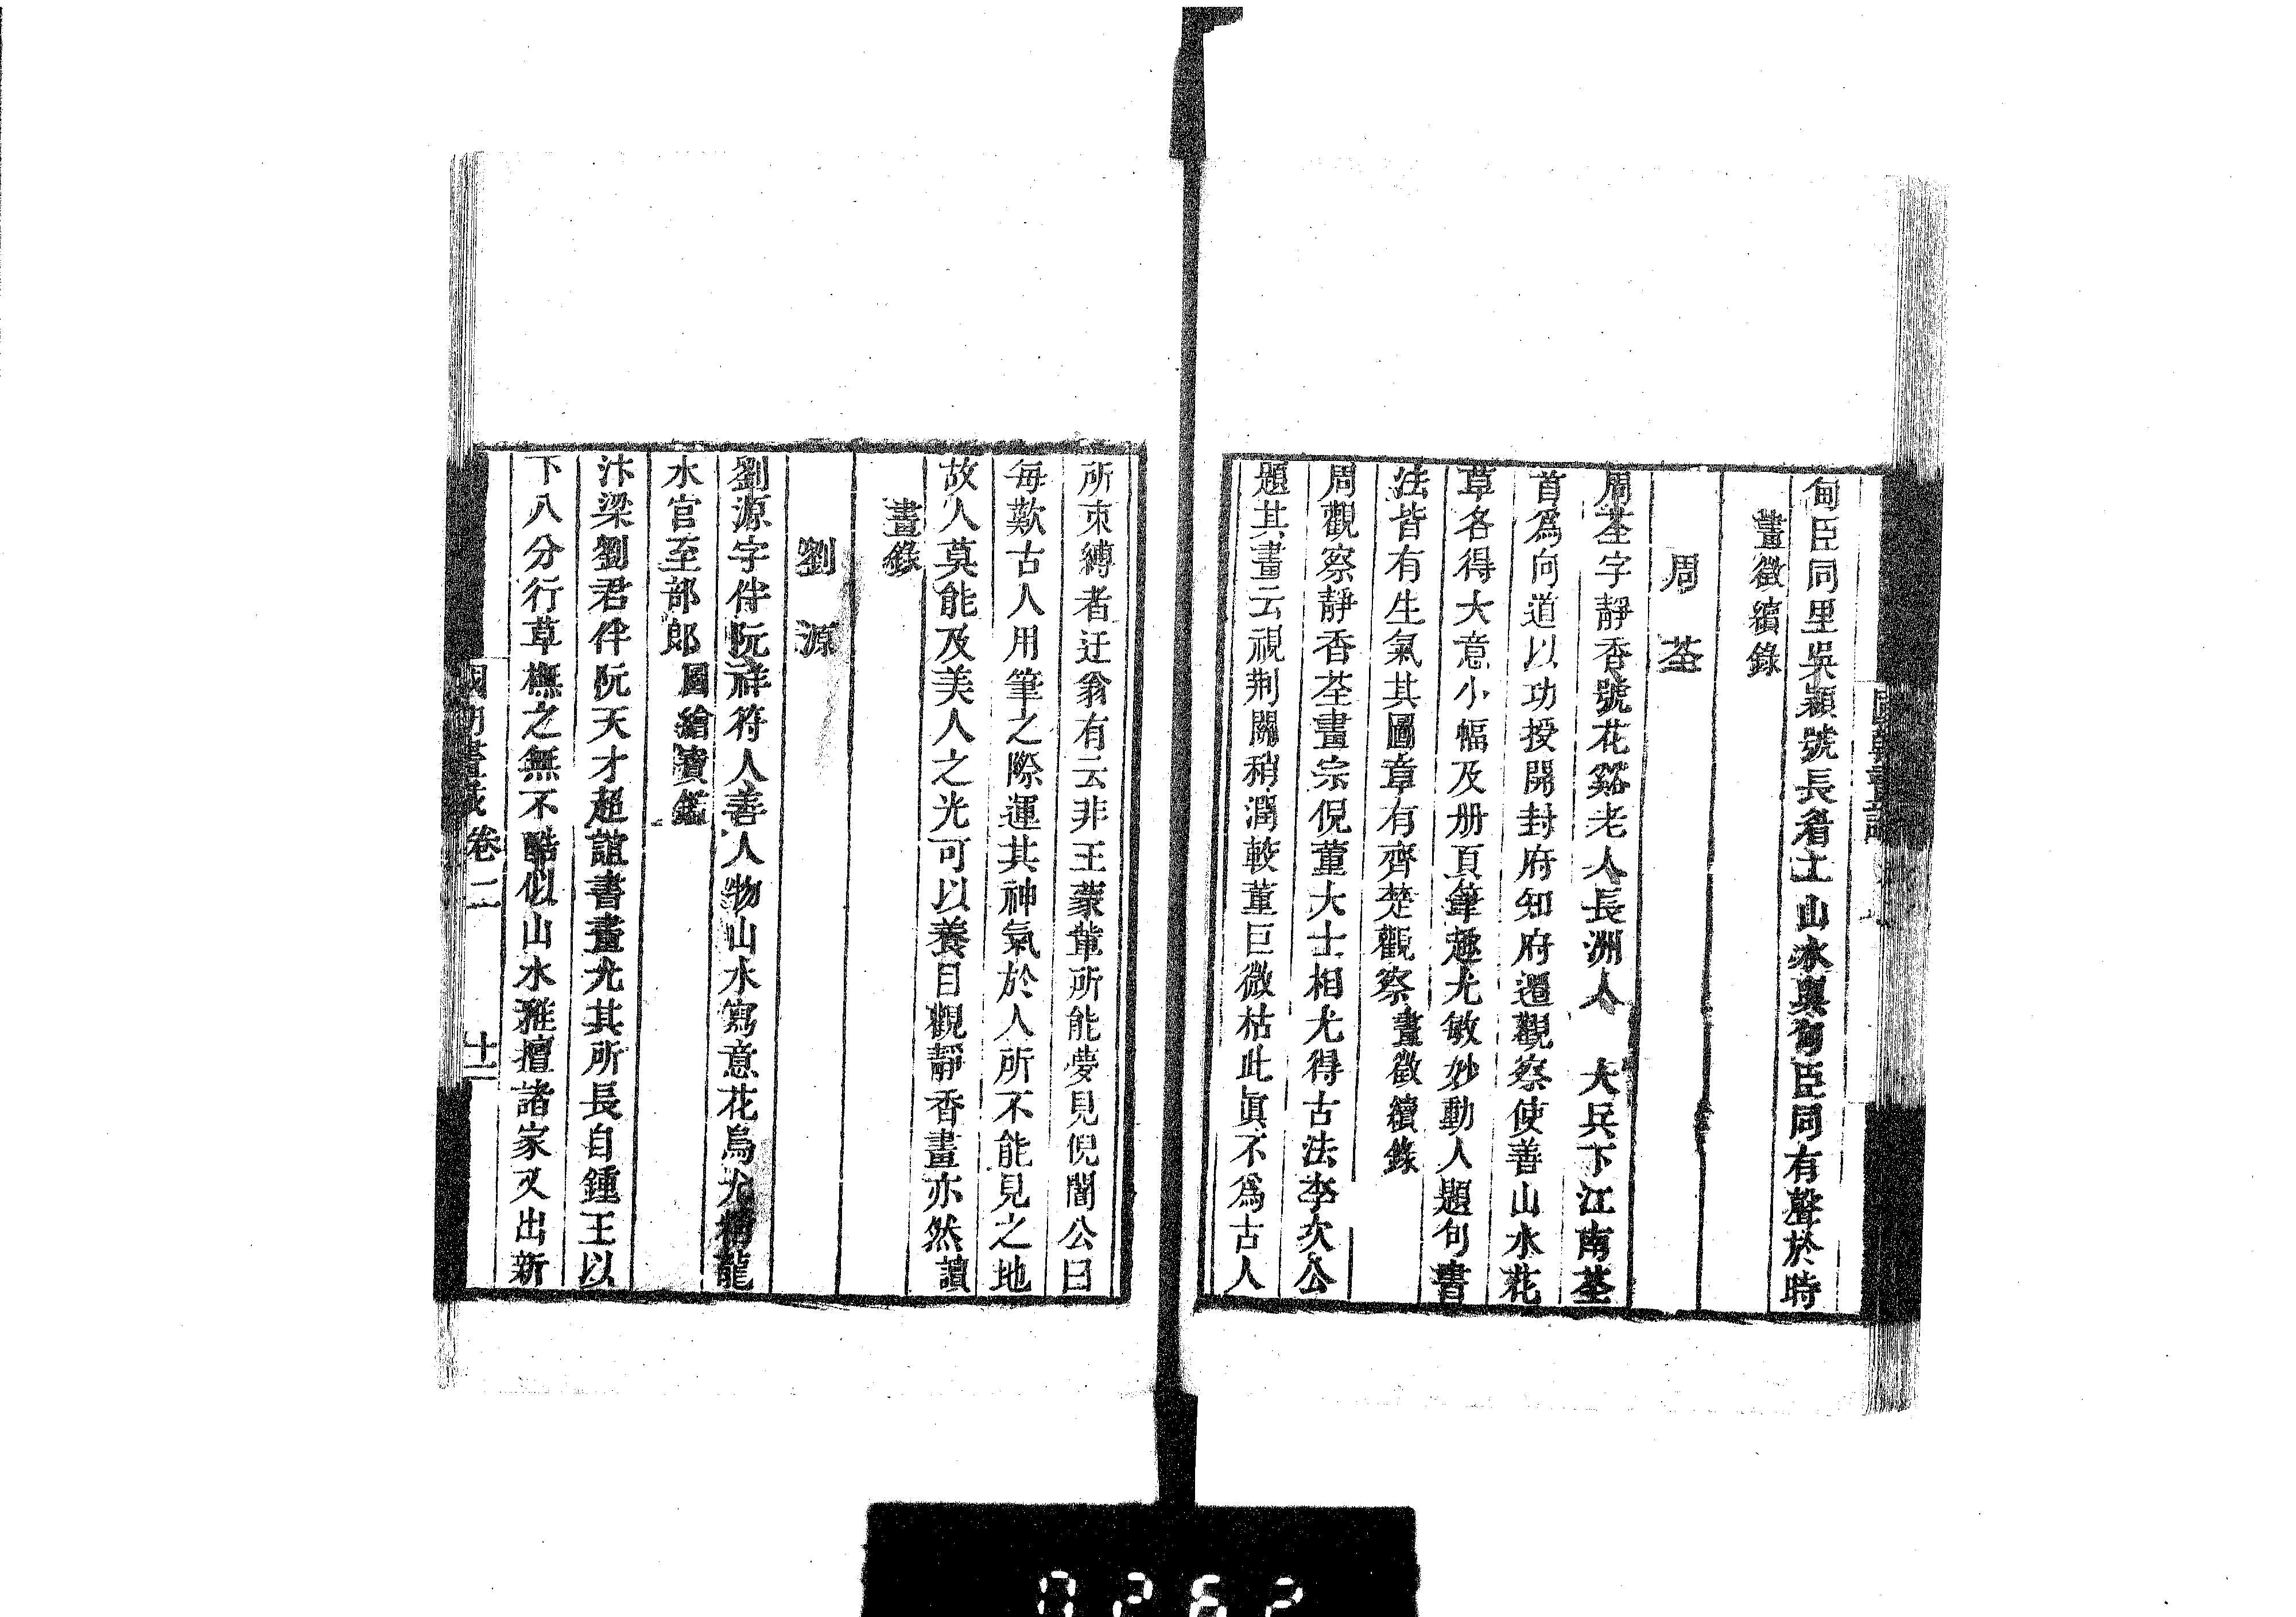 甸臣同里吳穎號長眉工山水與甸臣同有聲於時
畫徵續錄
周荃
周荃字靜香號花谿老人長洲人 大兵下江南荃
首爲向道以功授開封府知府遷觀察使善山水花
草各得大意小幅及册頁筆趣尤敏妙動人題句書
法皆有生氣其圖章有齊楚觀察畫徵續錄
周觀察靜香荃畫宗倪董大士相尤得古法李次公
題其畫云視荆關稍潤較董巨微枯此眞不爲古人
所束縛者迂翁有云非王蒙輩所能夢見倪闇公曰
每歎古人用筆之際運其神氣於人所不能見之地
故人莫能及美人之光可以養目觀靜香畫亦然讀
畫錄
劉源
劉源字伴阮祥符人善人物山水寫意花鳥尤精龍
水官至部郎圖繪寶鑑
汴梁劉君伴阮天才超誼書畫尤其所長自鍾王以
下八分行草橅之無不酷似山水雅擅諸家又出新
國朝畫識 卷二 十二